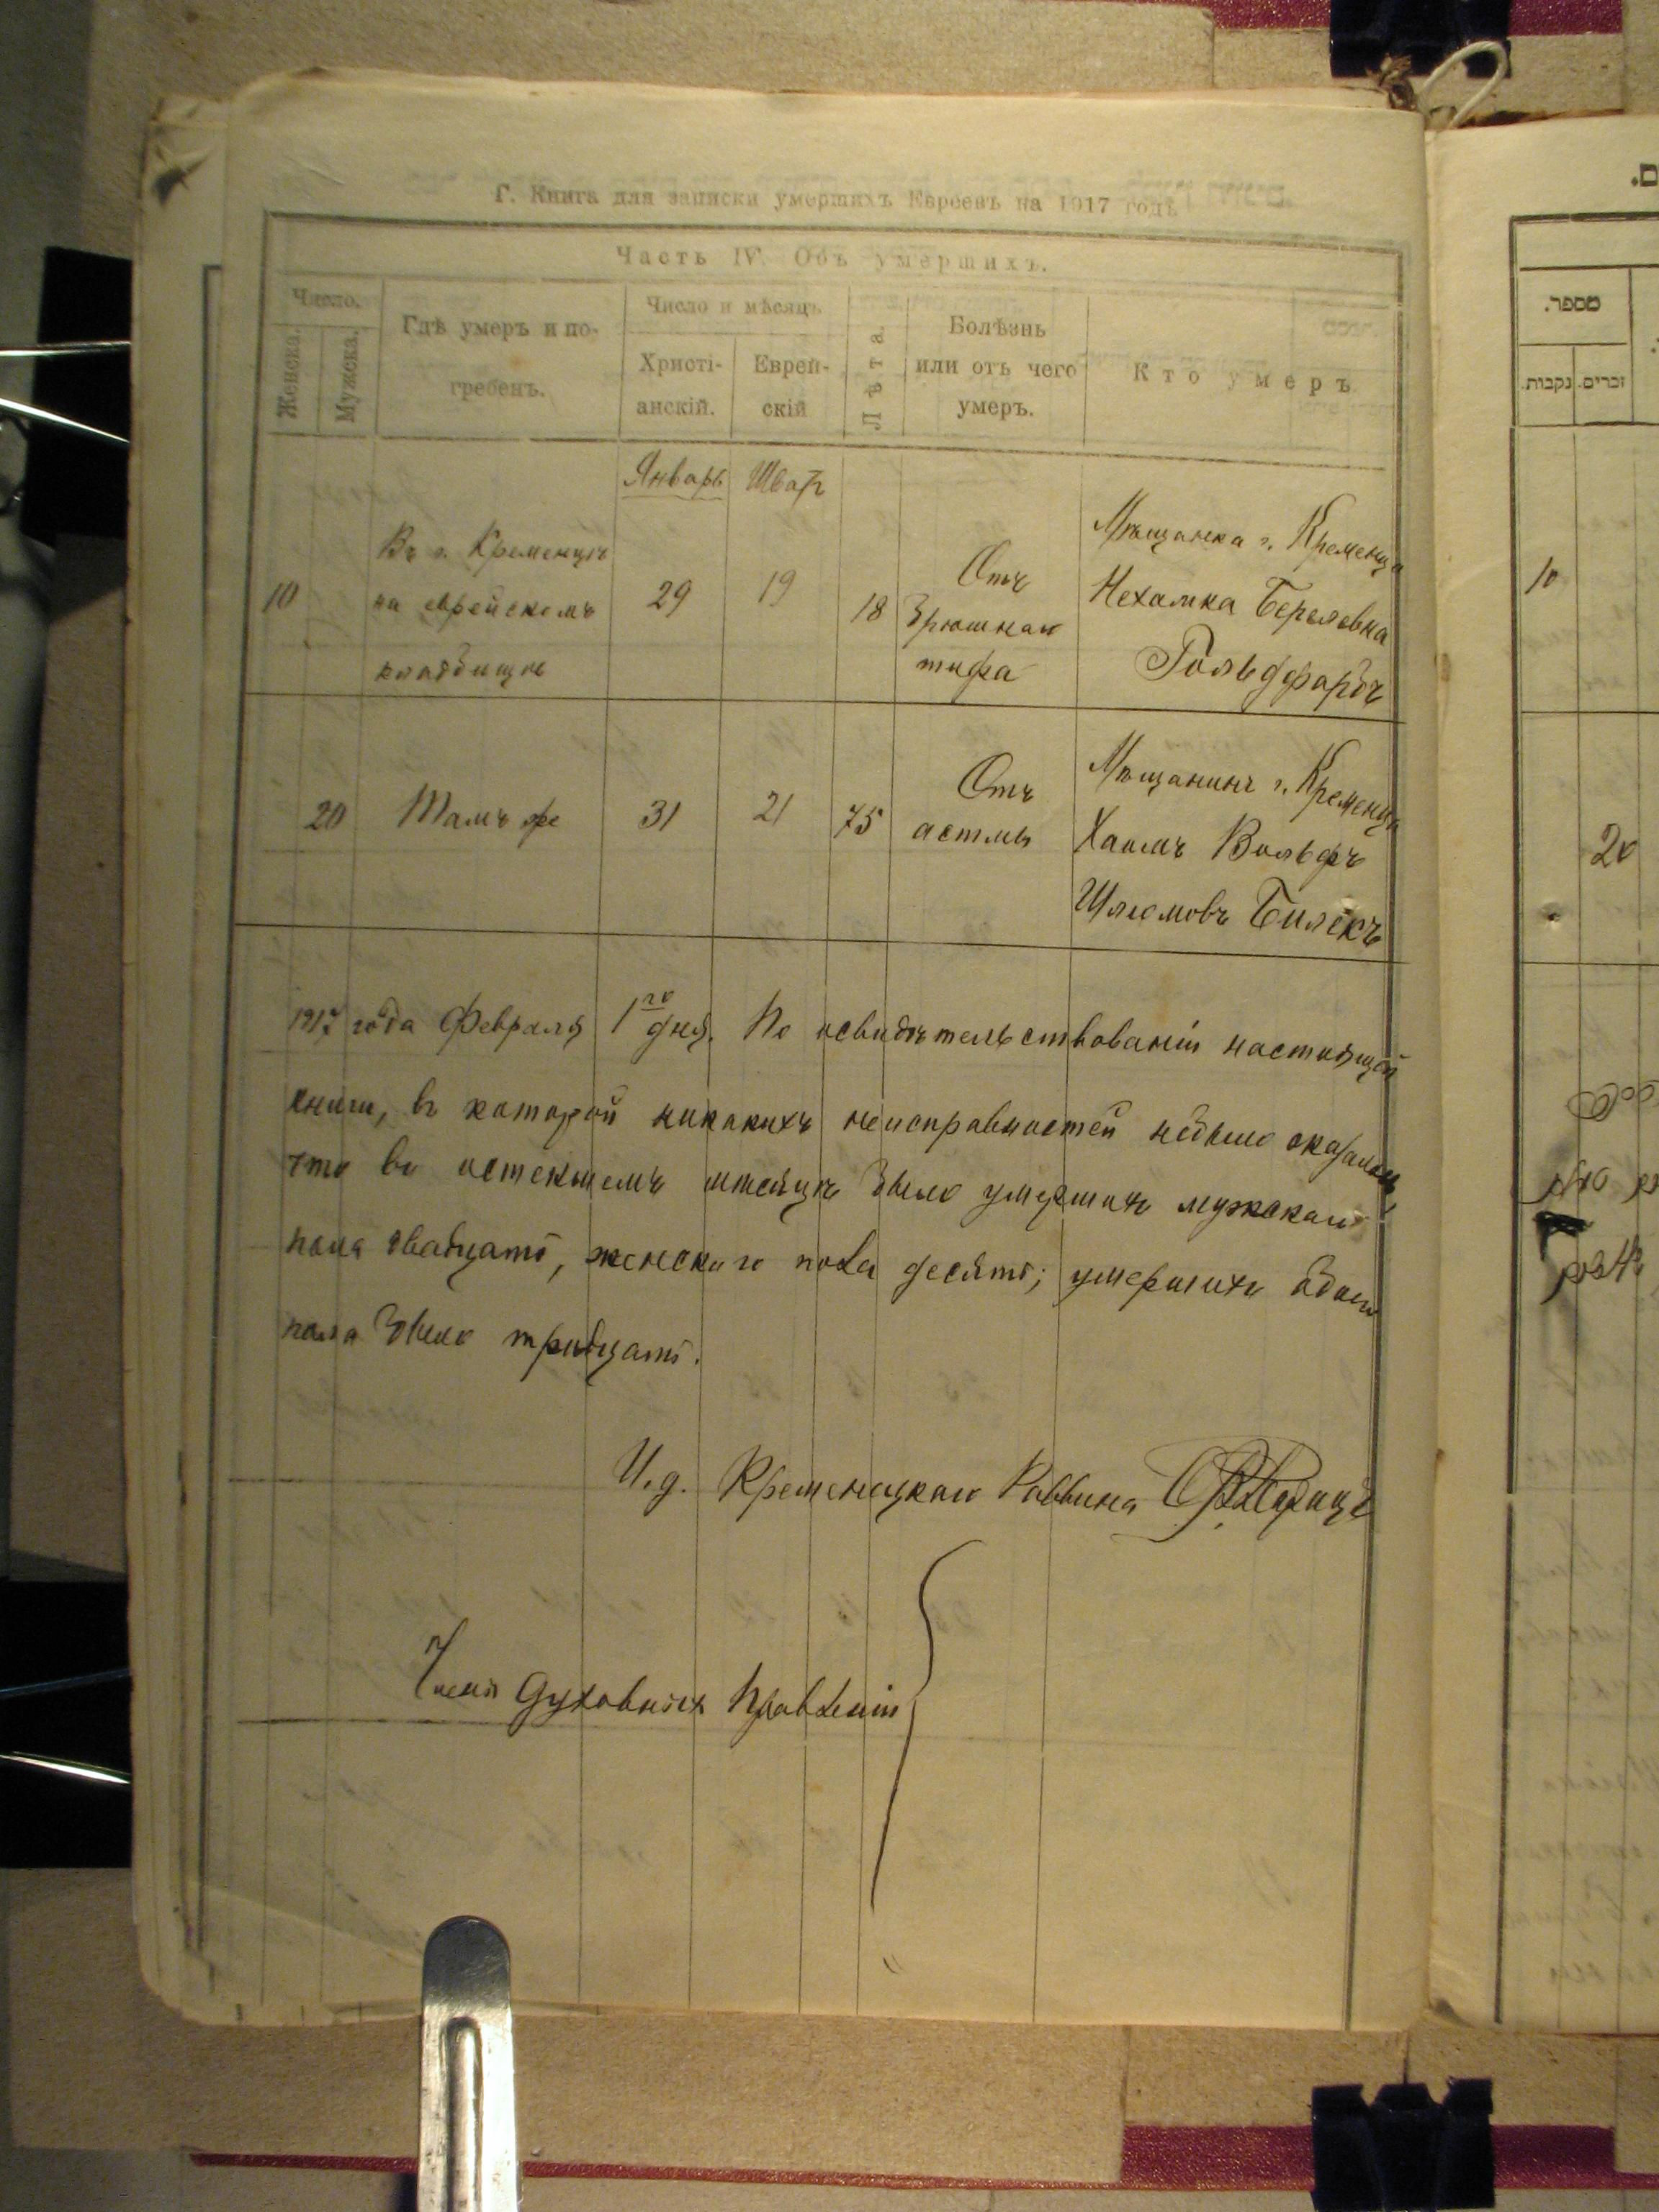 Г. Книга для записки умершихъ Евреевъ на 1917 годъ
Часть IV. Объ умершихъ.
Число.
Женска.
Мужска.
Гдѣ умеръ и по-
гребенъ.
Число и мѣсяцъ.
Христі-
анскій.
Еврей-
скій
Лѣта.
Болѣзнь
или отъ чего
умеръ.
Кто умеръ
Январь Шватъ
10
Въ г. Кременцѣ
на еврейскомъ
кладбищѣ
29
19
18
Отъ
брюшнаго
тифа
Мѣщанка г. Кременца
Нехамка Берковна
Гольдфарбъ
20
Тамъ же
31
21
75
Отъ
астмы
Мѣщанинъ г. Кременца
Хаимъ Вольфъ
Шлемовъ Билекъ
1917 года Февраля 1го дня. По освидѣтельствованіи настоящей
книги, въ которой никакихъ неисправностей небыло оказалось,
что въ истекшемъ мѣсяцѣ было умершихъ мужскаго
пола двадцать, женскаго пола десять; умершихъ обоего
пола было тридцать.
И. д. Кременецкаго Раввина
Члены Духовныхъ Правленій
מספר.
נקבות.
זכרים.
10
20